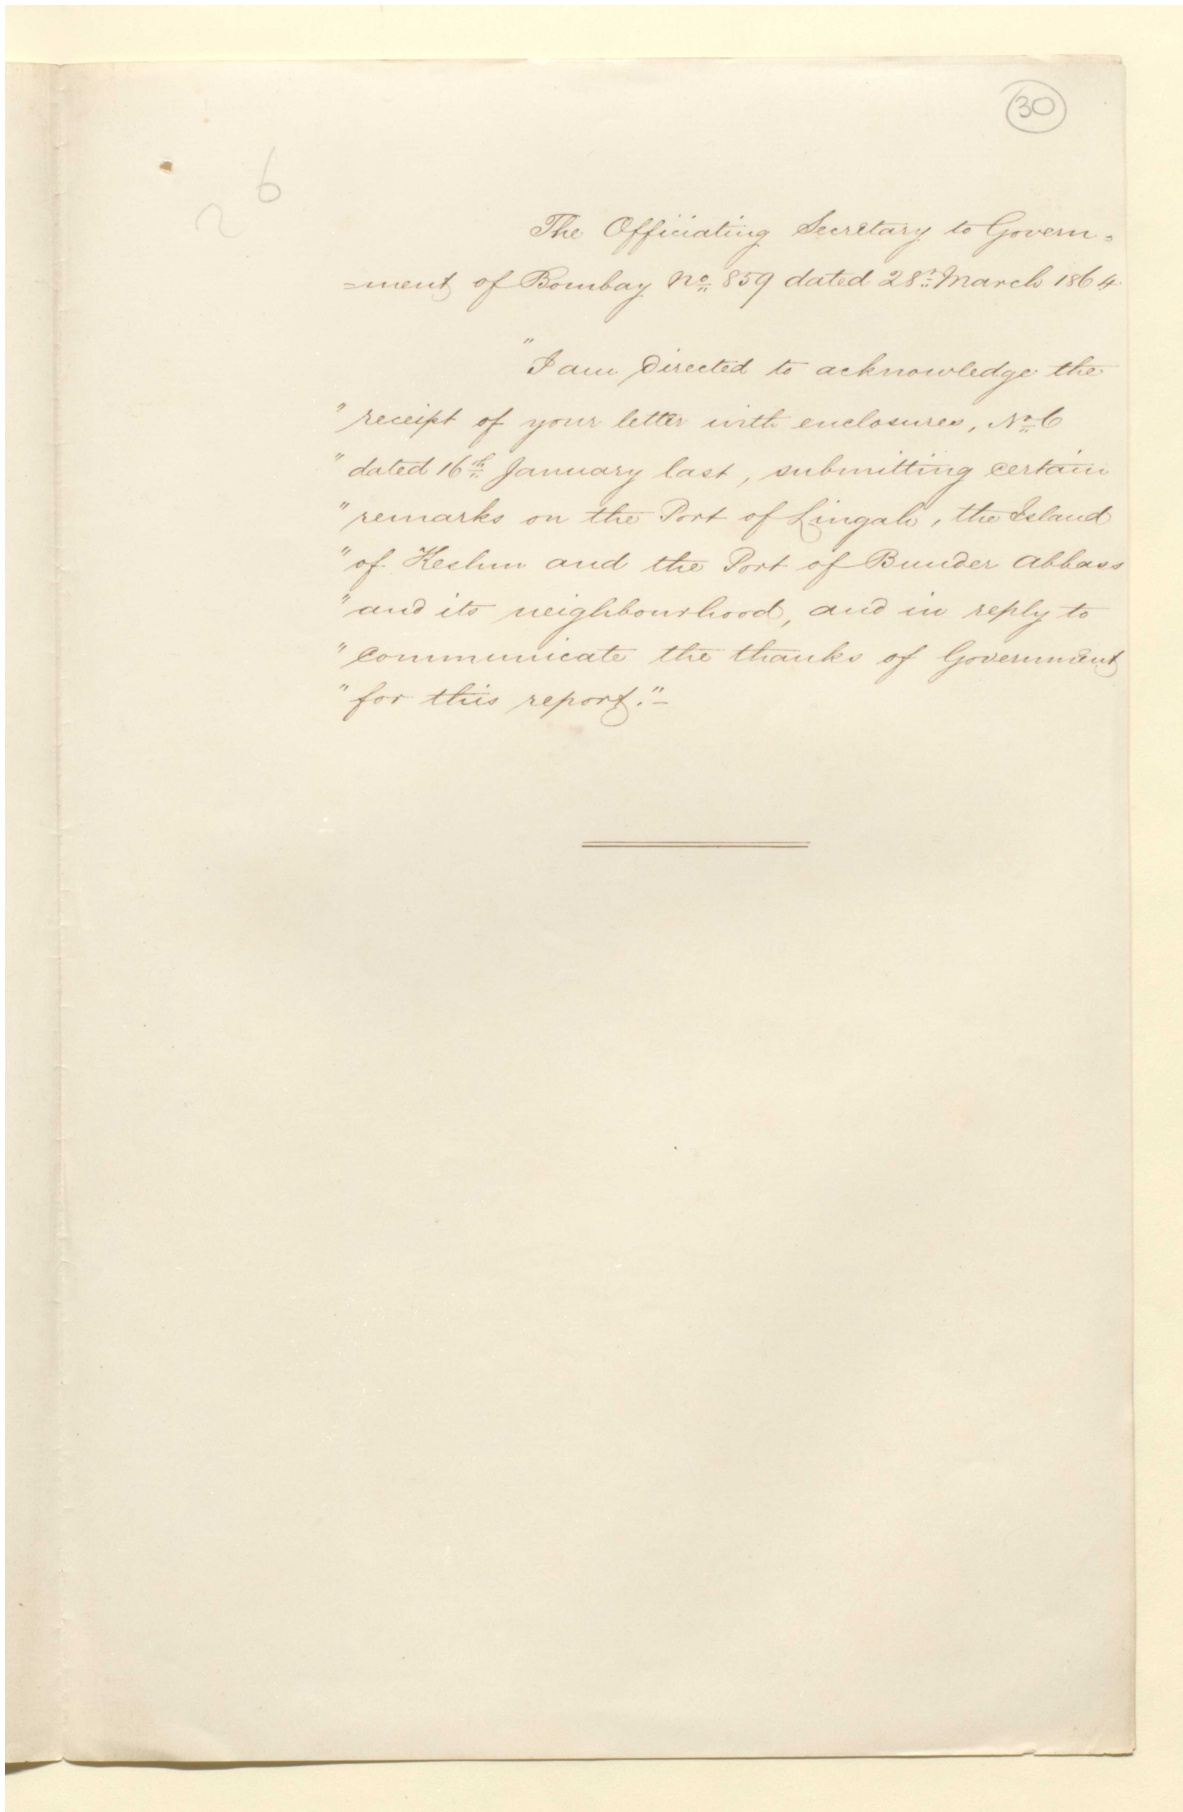 30
6
2
The Officiating Secretary to Govern=
=ment of Bombay No 859 dated 28th March 1864
"I am directed to acknowledge the
"receipt of your letter with enclosures, No 6
"dated 16th January last, submitting certain
"remarks on the Port of Lingah, the Island
"of Keshm and the Port of Bunder Abbass
"and its neighbourhood, and in reply to
"communicate the thanks of Government
"for this report."-